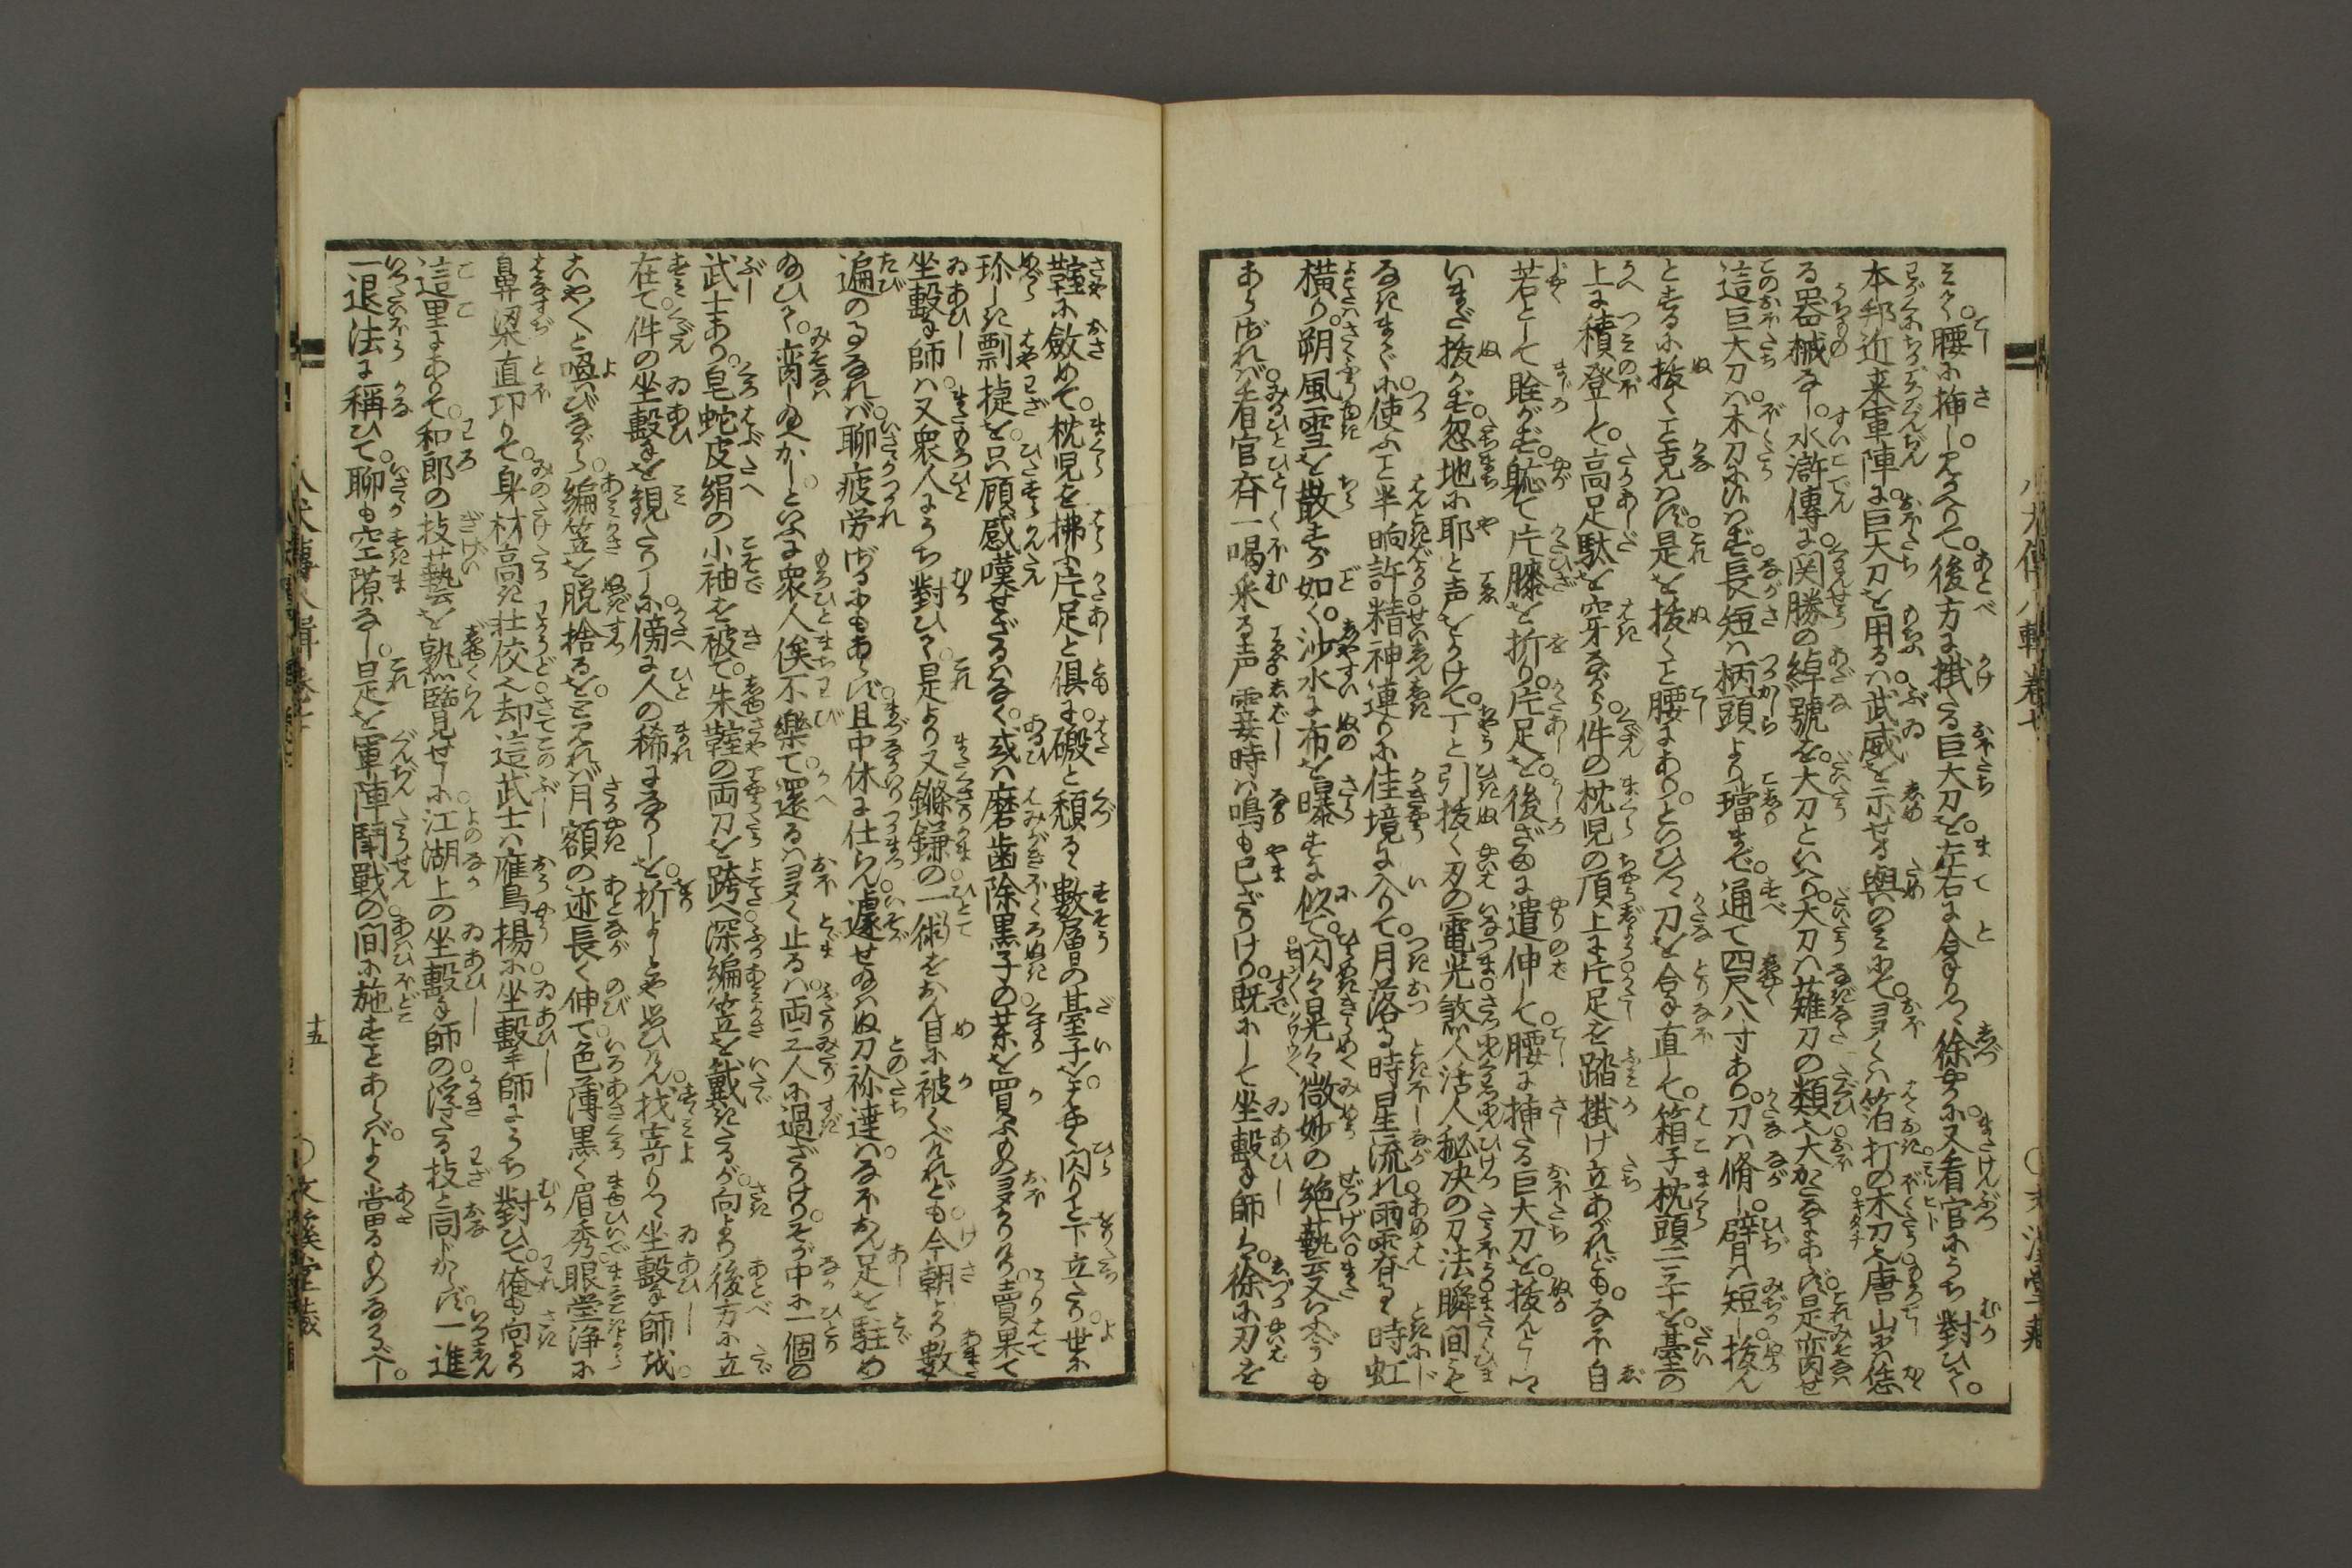 腰に挿し。見かへりて。後方に掛たる巨大刀を。左右に合とりつゝ徐やかに。又看官にうち對ひて。
本邦近来軍陣に。巨大刀を用るは。武威を示せる與のみにて。多くは箔打の木刀也。唐山には恁
る器械なし。水滸傳に。関勝の綽號を。大刀といへり。大刀は薙刀の類也。大かたなにあらず。是亦看せ
這巨大刀は。木刀にあらず。長短は柄頭より璫まで。通て四尺八寸あり。刀は脩し。臂は短し。抜ん
とするに抜くこと克はず。是を抜くこと腰にあり。といひつゝ刀を合とり直して。箱子枕頭二三十を。臺の
上に積登して。高足駄を穿ながら。件の枕児の頂上に片足を踏掛け立あがれども。なほ自
若として晗がず。軈て片膝を折り。片足を。後ざまに遣伸して。腰に挿たる巨大刀を。抜んとしつゝ
いまだ抜かず。忽地に耶と声をかけて。丁と引抜く刃の電光。煞人活人秘决の刀法瞬間も
なきまでに。使ふこと半晌許。精神連りに佳境に入りて。月落る時星流れ。雨霽るゝ時虹
横り。朔風雪を散すが如く。沙水に布を曝すに似て。閃々晃々微妙の絶藝。又いふべうも
あらざれば。看官斉一喝采る声。霎時は鳴も已ざりけり。既にして坐撃師は。徐に刃を
鞘に斂めて。枕児を拂ふ片足と倶に。礑と頽るゝ數層の臺子を。閃りと下立たり。世に
珍しき剽㨗を。只顧感嘆せざるはなく。或は磨歯除黒子の薬を買ふもの多かりける。賣果て
坐撃師は又衆人にうち對ひて。是より又鏁鎌の一術をおん目に被くべけれども。今朝より數
遍のことなれば。聊疲労ずるにもあらず。且中休に仕らん。遽せ給はぬ刀祢達は。なほおん足を駐め
給ひて。亦看給へかし。といふに衆人俟不樂て。還るは多く止るは。両三人に過ざりけり。そが中に一個の
武士あり。皂蛇皮絹の小袖を被て。朱鞘の両刀を跨へ。深編笠を戴きたるが。向より後方に立
在て。件の坐撃を觀たりしに。傍に人の稀になりしを。折よしとや思ひけん。找寄りつゝ坐撃師を。
こやこやと喚びながら。編笠を脱捨るを。と見れば月額の迹長く伸て。色薄黒く眉秀眼瑩浄に
鼻梁直卬りて。身材高き壮佼也。却這武士は。雁鳥揚に坐撃師にうち對ひて。俺も向より
這里にありて。和郎の技藝を熟臨見せしに。江湖上の坐撃師の。浮たる技と同じからず。一進
一退法に稱ひて。聊も空隙なし。是を軍陣鬪戰の間に施すことあらば。よく當るものなるべし。
十五